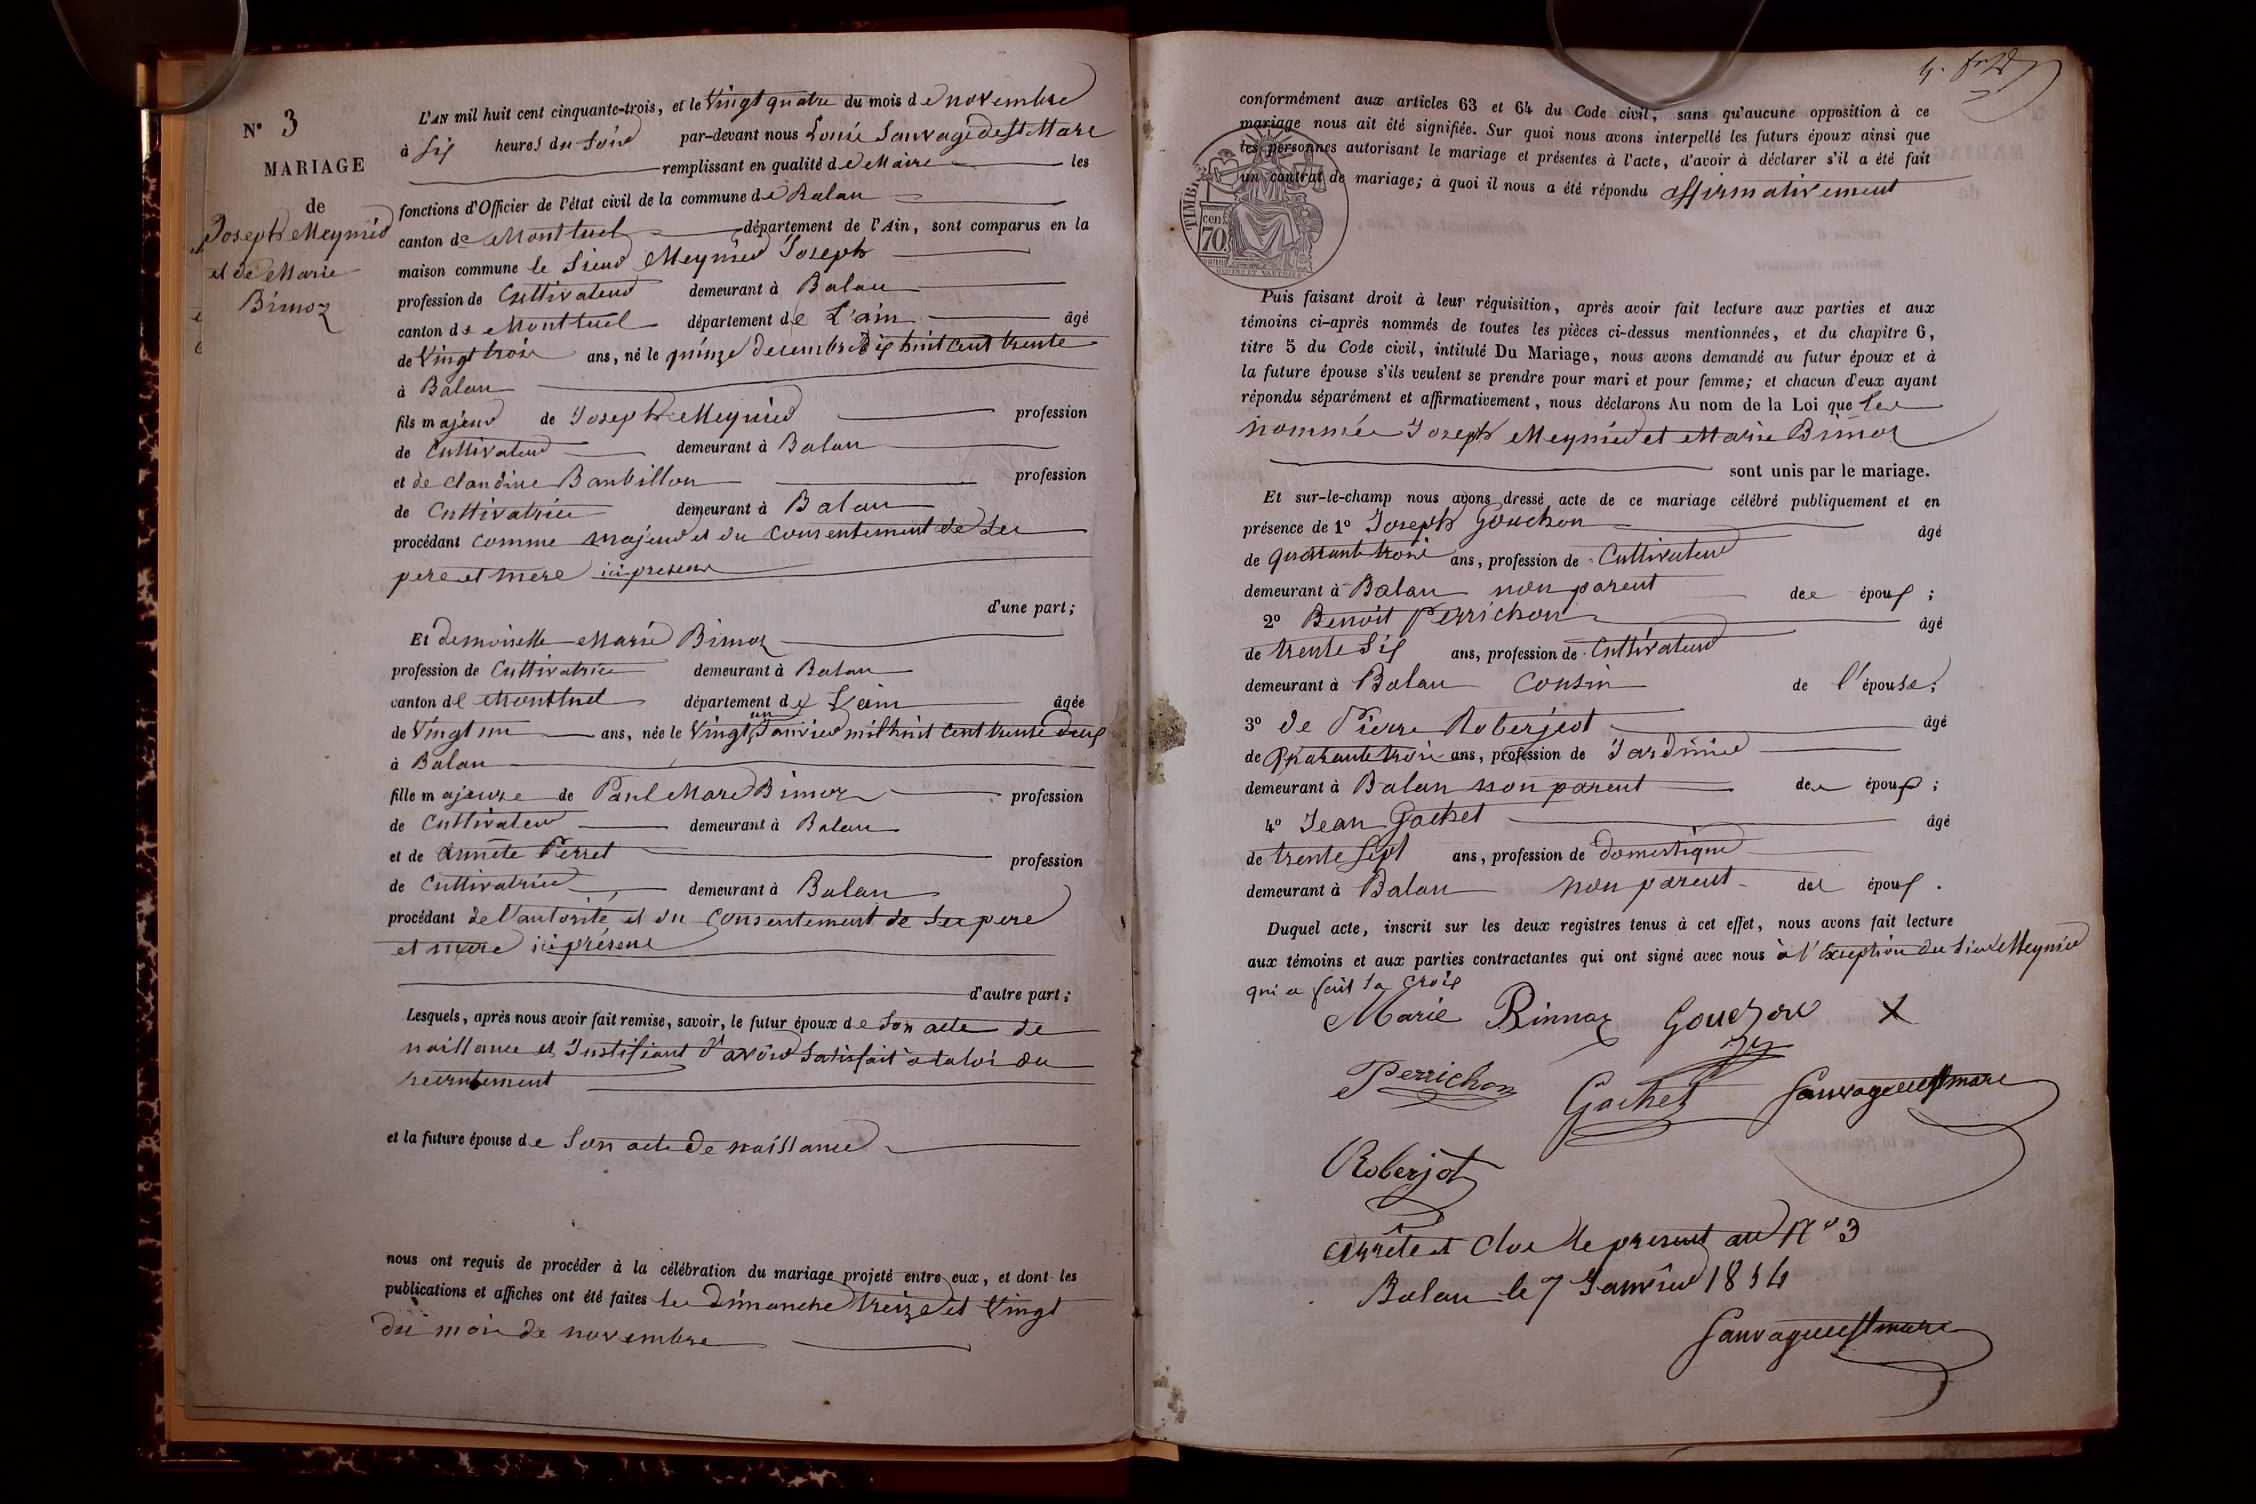 N° 3
MARIAGE
de
Joseph Meynier
et de Marie
Bimoz
L'AN mil huit cent cinquante-trois, et le Vingt quatre du mois de novembre
à Six heures du Soir par-devant nous Louis Sauvage de St Marc
remplissant en qualité de Maire les
fonctions d'Officier de l'état civil de la commune de Balan
canton de Montluel département de l'Ain, sont comparus en la
maison commune le Sieur Meynier Joseph
profession de Cultivateur demeurant à Balan
canton de Montluel département de L'ain âgé
de Vingt trois ans, né le quinze decembre dix huit cent trente
à Balan
fils majeur de Joseph Meynier profession
de Cultivateur demeurant à Balan
et de Claudine Banbillon profession
de Cultivatrice demeurant à Balan
procédant comme majeur et du consentement de Ses
pere et mere ici presens
d'une part;
Et demoiselle Marie Bimoz
profession de Cultivatrice demeurant à Balan
canton de Montluel département de L'ain âgée
de Vingt un ans, née le Vingt un Janvier mil huit cent trente deux
à Balan
fille majeure de Paul Marc Bimoz profession
de Cultivateur demeurant à Balan
et de Annete Perret profession
de Cultivatrice demeurant à Balan
procédant de l'autorité et du consentement de Ses pere
et mere ici présens
d'autre part;
Lesquels, après nous avoir fait remise, savoir, le futur époux de Son acte de
naissance et Justifiant d'avoir Satisfait a la loi du
recrutement
et la future épouse de Son acte de naissance
nous ont requis de procéder à la célébration du mariage projeté entre eux, et dont les
publications et affiches ont été faites les dimanche treize et Vingt
du mois de novembre
conformément aux articles 63 et 64 du Code civil, sans qu'aucune opposition à ce
mariage nous ait été signifiée. Sur quoi nous avons interpellé les futurs époux ainsi que
les personnes autorisant le mariage et présentes à l'acte, d'avoir à déclarer s'il a été fait
un contrat de mariage; à quoi il nous a été répondu affirmativement
TIMBRE
cen.
70
Puis faisant droit à leur réquisition, après avoir fait lecture aux parties et aux
témoins ci-après nommés de toutes les pièces ci-dessus mentionnées, et du chapitre 6,
titre 5 du Code civil, intitulé Du Mariage, nous avons demandé au futur époux et à
la future épouse s'ils veulent se prendre pour mari et pour femme; et chacun d'eux ayant
répondu séparément et affirmativement, nous déclarons Au nom de la Loi que les
nommés Joseph Meynier et Marie Bimoz
sont unis par le mariage.
Et sur-le-champ nous avons dressé acte de ce mariage célébré publiquement et en
présence de 1° Joseph Gouchon âgé
de quarante trois ans, profession de Cultivateur
demeurant à Balan non parent des époux ;
2° Benoit Perrichon âgé
de trente Six ans, profession de Cultivateur
demeurant à Balan Cousin de l'épouse;
3° de Pierre Roberjeot âgé
de Quarante trois ans, profession de Jardinier
demeurant à Balan non parent des époux ;
4° Jean Gachet âgé
de trente Sept ans, profession de domestique
demeurant à Balan non parent des époux .
Duquel acte, inscrit sur les deux registres tenus à cet effet, nous avons fait lecture
aux témoins et aux parties contractantes qui ont signé avec nous à l'Exception du Sieur Meynier
qui a fait Sa Croix
Marie Bimoz Gouchon X
Perrichon Gachet Sauvage de St marc
Roberjot
Arrêté et Clos le present au N° 3
Balan le 7 Janvier 1854
Sauvage de St marc